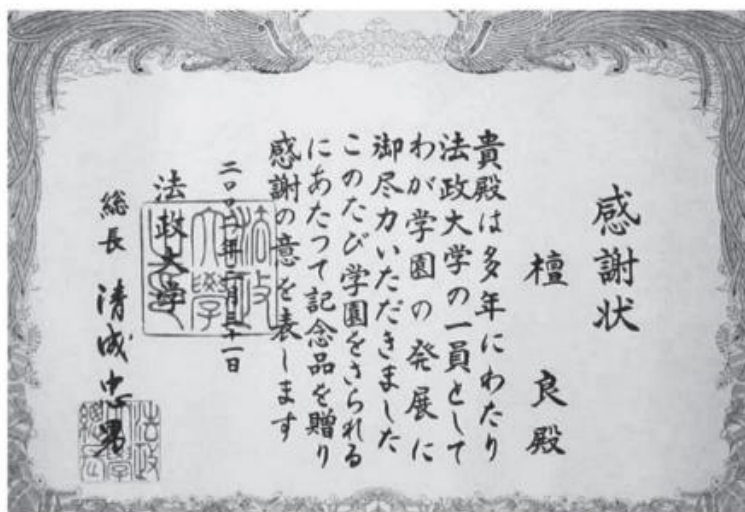 感謝状
檀 良殿
貴殿は多年にわたり
法政大学の一員として
わが学園の発展に
御尽力いただきました
このたび学園をさられる
にあたって記念品を贈り
感謝の意を表します
法政大学
総長 清成忠男